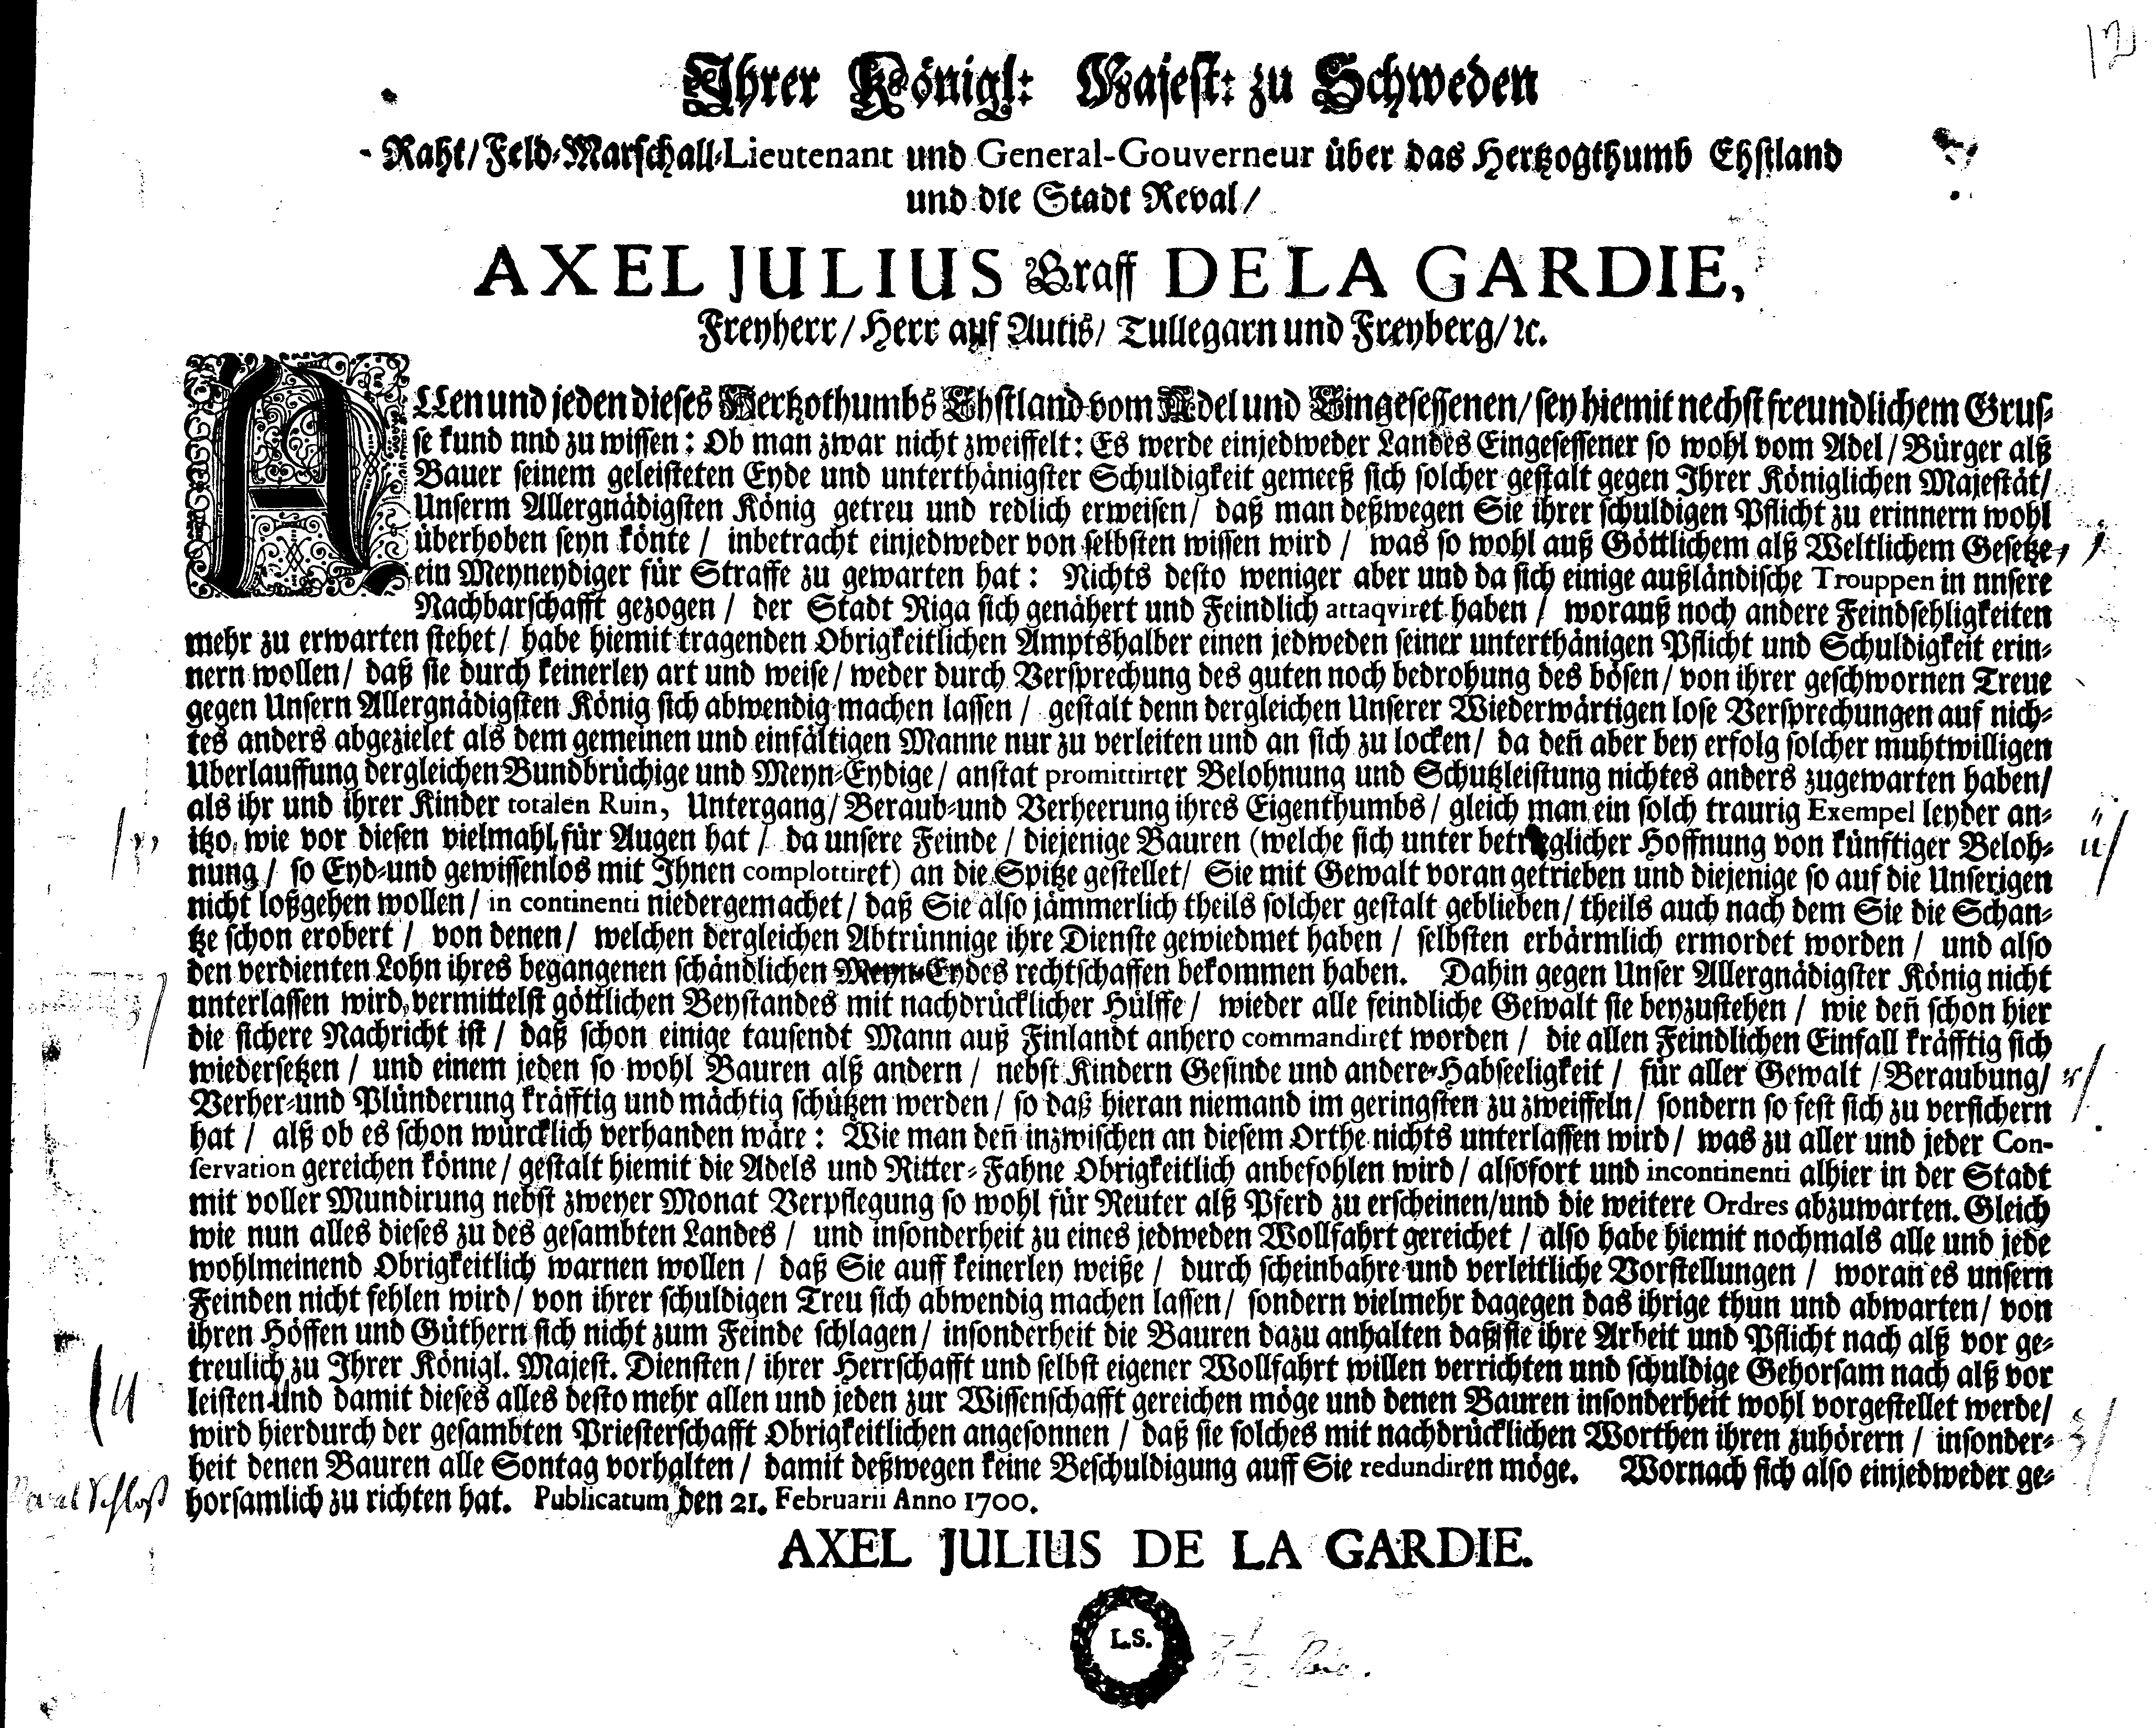 12
Ihrer Königl: Majest: zu Schweden
Raht/ Feld-Marschall-Lieutenant und General-Gouverneur über das Hertzogthumb Ehstland
und die Stadt Reval/
AXEL JULIUS Graff DE LA GARDIE,
Freyherr/ Herr auf Autis/ Tullegarn und Freyberg/ ꝛc.
ALLen und jeden dieses Hertzothumbs Ehstland vom Adel und Eingesessenen/ sey hiemit nechst freundlichem Grus-
se kund nnd zu wissen: Ob man zwar nicht zweiffelt: Es werde einjedweder Landes Eingesessener so wohl vom Adel/ Bürger alß
Bauer seinem geleisteten Eyde und unterthänigster Schuldigkeit gemeeß sich solcher gestalt gegen Ihrer Königlichen Majestät/
Unserm Allergnädigsten König getreu und redlich erweisen/ daß man deßwegen Sie ihrer schuldigen Pflicht zu erinnern wohl
überhoben seyn könte/ inbetracht einjedweder von selbsten wissen wird/ was so wohl auß Göttlichem alß Weltlichem Gesetze,
ein Meyneydiger für Straffe zu gewarten hat: Nichts desto weniger aber und da sich einige außländische Trouppen in nnsere
Nachbarschafft gezogen/ der Stadt Riga sich genähert und Feindlich attaqviret haben/ worauß noch andere Feindsehligkeiten
mehr zu erwarten stehet/ habe hiemit tragenden Obrigkeitlichen Amptshalber einen jedweden seiner unterthänigen Pflicht und Schuldigkeit erin-
nern wollen/ daß sie durch keinerley art und weise/ weder durch Versprechung des guten noch bedrohung des bösen/ von ihrer geschwornen Treue
gegen Unsern Allergnädigsten König sich abwendig machen lassen/ gestalt denn dergleichen Unserer Wiederwärtigen lose Versprechungen auf nich-
tes anders abgezielet als dem gemeinen und einfältigen Manne nur zu verleiten und an sich zu locken/ da deñ aber bey erfolg solcher muhtwilligen
Uberlauffung dergleichen Bundbrüchige und Meyn-Eydige/ anstat promittirter Belohnung und Schutzleistung nichtes anders zugewarten haben/
als ihr und ihrer Kinder totalen Ruin, Untergang/ Beraub-und Verheerung ihres Eigenthumbs/ gleich man ein solch traurig Exempel leyder an-
itzo, wie vor diesen vielmahl für Augen hat/ da unsere Feinde/ diejenige Bauren (welche sich unter betrüglicher Hoffnung von künftiger Beloh-
nung/ so Eyd-und gewissenlos mit Ihnen complottiret) an die Spitze gestellet/ Sie mit Gewalt voran getrieben und diejenige so auf die Unserigen
nicht loßgehen wollen/ in continenti niedergemachet/ daß Sie also jämmerlich theils solcher gestalt geblieben/ theils auch nach dem Sie die Schan-
tze schon erobert/ von denen/ welchen dergleichen Abtrünnige ihre Dienste gewiedmet haben/ selbsten erbärmlich ermordet worden/ und also
den verdienten Lohn ihres begangenen schändlichen Meyn-Eydes rechtschaffen bekommen haben. Dahin gegen Unser Allergnädigster König nicht
unterlassen wird, vermittelst göttlichen Beystandes mit nachdrücklicher Hülffe/ wieder alle feindliche Gewalt sie beyzustehen/ wie deñ schon hier
die sichere Nachricht ist/ daß schon einige tausendt Mann auß Finlandt anhero commandiret worden/ die allen Feindlichen Einfall kräfftig sich
wiedersetzen/ und einem jeden so wohl Bauren alß andern/ nebst Kindern Gesinde und andere-Habseeligkeit/ für aller Gewalt/ Beraubung/
Verher-und Plünderung kräfftig und mächtig schützen werden/ so daß hieran niemand im geringsten zu zweiffeln/ sondern so fest sich zu versichern
hat/ alß ob es schon würcklich verhanden wäre: Wie man deñ inzwischen an diesem Orthe nichts unterlassen wird/ was zu aller und jeder Con-
servation gereichen könne/ gestalt hiemit die Adels und Ritter-Fahne Obrigkeitlich anbefohlen wird/ alsofort und incontinenti alhier in der Stadt
mit voller Mundirung nebst zweyer Monat Verpflegung so wohl für Reuter alß Pferd zu erscheinen/und die weitere Ordres abzuwarten. Gleich
wie nun alles dieses zu des gesambten Landes/ und insonderheit zu eines jedweden Wollfahrt gereichet/ also habe hiemit nochmals alle und jede
wohlmeinend Obrigkeitlich warnen wollen/ daß Sie auff keinerley weiße/ durch scheinbahre und verleitliche Vorstellungen/ woran es unsern
Feinden nicht fehlen wird/ von ihrer schuldigen Treu sich abwendig machen lassen/ sondern vielmehr dagegen das ihrige thun und abwarten/ von
ihren Höffen und Güthern sich nicht zum Feinde schlagen/ insonderheit die Bauren dazu anhalten daß sie ihre Arbeit und Pflicht nach alß vor ge-
treulich zu Ihrer Königl. Majest. Diensten/ ihrer Herrschafft und selbst eigener Wollfahrt willen verrichten und schuldige Gehorsam nach alß vor
leisten. Und damit dieses alles desto mehr allen und jeden zur Wissenschafft gereichen möge und denen Bauren insonderheit wohl vorgestellet werde/
wird hierdurch der gesambten Priesterschafft Obrigkeitlichen angesonnen/ daß sie solches mit nachdrücklichen Worthen ihren zuhörern/ insonder-
heit denen Bauren alle Sontag vorhalten/ damit deßwegen keine Beschuldigung auff Sie redundiren möge. Wornach sich also einjedweder ge-
horsamlich zu richten hat. Publicatum den 21. Februarii Anno 1700.
Schloß
AXEL JULIUS DE LA GARDIE.
L.S.